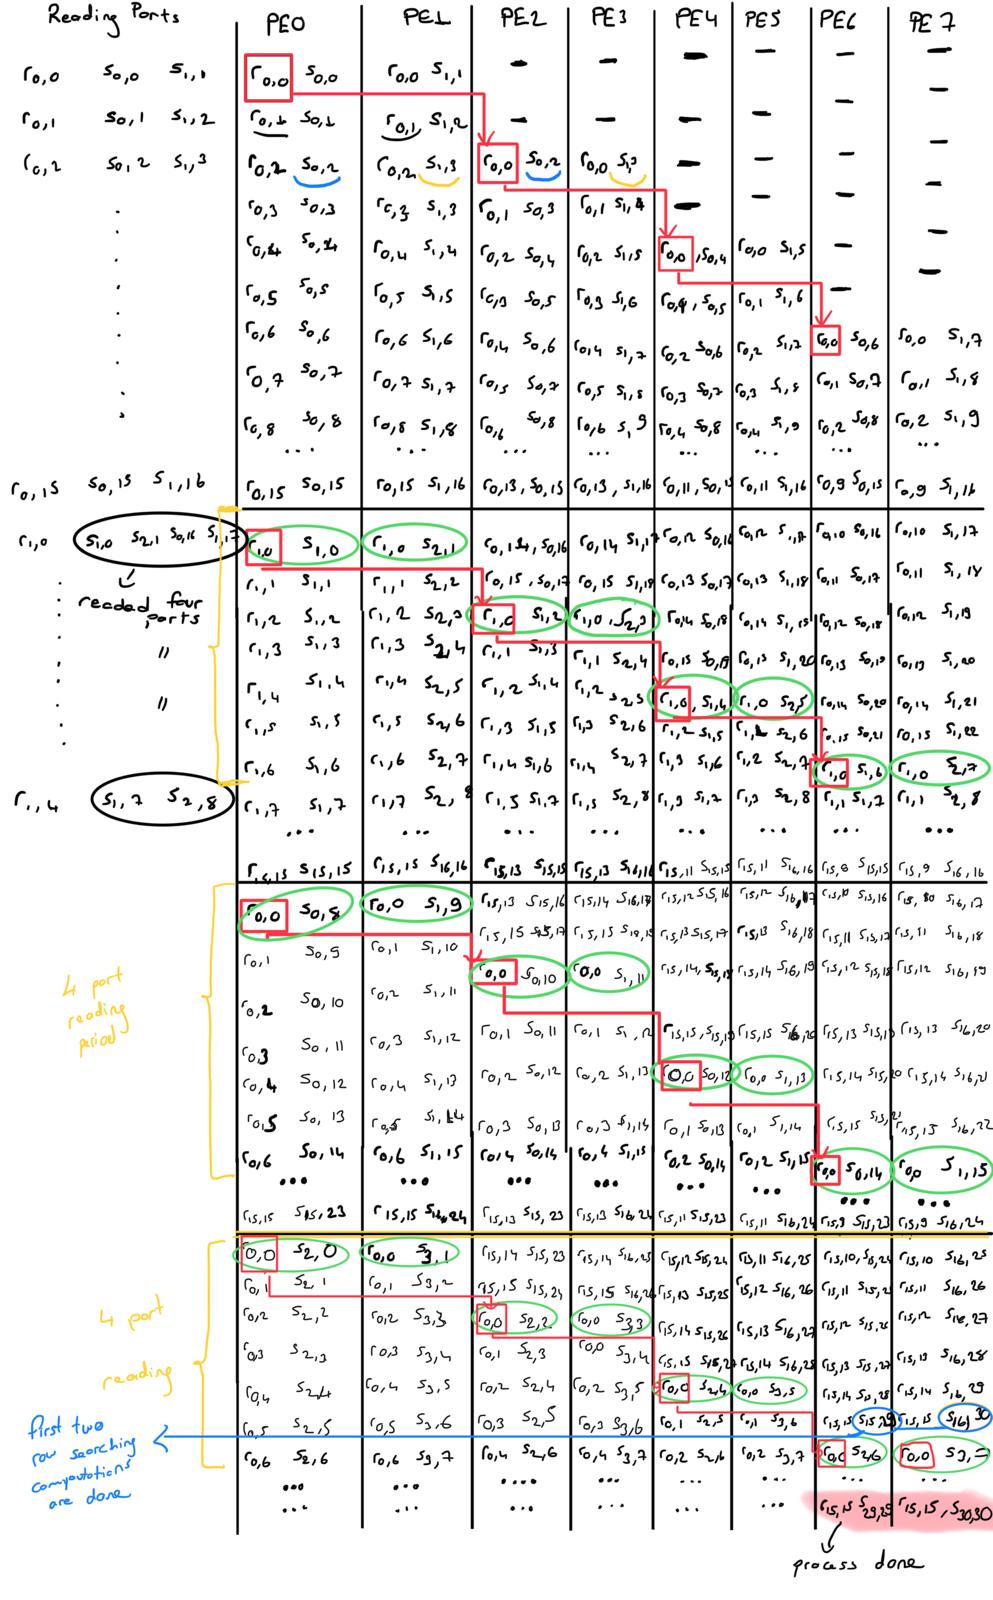 Reading Ports PE0 PE1 PE2 PE3 PE4 PE5 PE6 PE7
r0,0 s0,0 s1,1 r0,0 s0,0 r0,0 s1,1 - - - - - -
r0,1 s0,1 s1,2 r0,1 s0,1 r0,1 s1,2 - - - - - -
r0,2 s0,2 s1,3 r0,2 s0,2 r0,2 s1,3 r0,0 s0,2 r0,0 s1,3 - - - -
r0,3 s0,3 r0,3 s1,3 r0,1 s0,3 r0,1 s1,4 - - - -
r0,4 s0,4 r0,4 s1,4 r0,2 s0,4 r0,2 s1,5 r0,0, s0,4 r0,0 s1,5 - -
r0,5 s0,5 r0,5 s1,5 r0,3 s0,5 r0,3 s1,6 s0,5 r0,1 s1,6 - -
r0,6 s0,6 r0,6 s1,6 r0,4 s0,6 r0,4 s1,7 r0,2 s0,6 r0,2 s1,7 r0,0 s0,6 r0,0 s1,7
r0,7 s0,7 r0,7 s1,7 r0,5 s0,7 r0,5 s1,8 r0,3 s0,7 r0,3 s1,8 r0,1 s0,7 r0,1 s1,8
r0,8 s0,8 r0,8 s1,8 r0,6 s0,8 r0,6 s1,9 r0,4 s0,8 r0,4 s1,9 r0,2 s0,8 r0,2 s1,9
... ... ... ... ... ... ... ...
r0,15 s0,15 s1,16 r0,15 s0,15 r0,15 s1,16 r0,13, s0,15 r0,13, s1,16 r0,11, s0,15 r0,11 s1,16 r0,9 s0,15 r0,9 s1,16
r1,0 s1,0 s2,1 s0,16 s1,17 r1,0 s1,0 r1,0 s2,1 r0,14, s0,16 r0,14 s1,17 r0,12 s0,16 r0,12 s1,17 r0,10 s0,16 r0,10 s1,17
r1,1 s1,1 r1,1 s2,2 r0,15, s0,17 r0,15 s1,18 r0,13 s0,17 r0,13 s1,18 r0,11 s0,17 r0,11 s1,18
readed four ports
r1,2 s1,2 r1,2 s2,3 r1,0 s1,2 r1,0, s2,3 r0,14 s0,18 r0,14 s1,19 r0,12 s0,18 r0,12 s1,19
" r1,3 s1,3 r1,3 s2,4 r1,1 s1,3 r1,1 s2,4 r0,15 s0,19 r0,15 s1,20 r0,13 s0,19 r0,13 s1,20
" r1,4 s1,4 r1,4 s2,5 r1,2 s1,4 r1,2 s2,5 r1,0, s1,4 r1,0 s2,5 r0,14 s0,20 r0,14 s1,21
r1,5 s1,5 r1,5 s2,6 r1,3 s1,5 r1,3 s2,6 r1,2 s1,5 s2,6 r0,15 s0,21 r0,15 s1,22
r1,6 s1,6 r1,6 s2,7 r1,4 s1,6 r1,4 s2,7 r1,3 s1,6 r1,2 s2,7 r1,0 s1,6 r1,0 s2,7
r1,4 s1,7 s2,8 r1,7 s1,7 r1,7 s2,8 r1,5 s1,7 r1,5 s2,8 r1,3 s1,7 r1,3 s2,8 r1,1 s1,7 r1,1 s2,8
... ... ... ... ... ... ... ...
r15,15 s15,15 r15,15 s16,16 r15,13 s15,15 r15,13 s16,16 r15,11 s15,15 r15,11 s16,16 r15,8 s15,15 r15,9 s16,16
r0,0 s0,8 r0,0 s1,9 r15,13 s15,16 r15,14 s16,17 r15,12 s15,16 r15,12 s16,17 r15,10 s15,16 s16,17
r0,1 s0,9 r0,1 s1,10 r15,15 s15,17 r15,15 r15,13 s15,17 r15,13 s16,18 r15,11 s15,17 r15,11 s16,18
4 port reading period
r0,2 s0,10 r0,2 s1,11 r0,0 s0,10 r0,0 s1,11 r15,14, s15,18 r15,14 s16,19 r15,12 s15,18 r15,12 s16,19
r0,3 s0,11 r0,3 s1,12 r0,1 s0,11 r0,1 s1,12 r15,15 s15,19 r15,15 r15,13 s15,19 r15,13 s16,20
r0,4 s0,12 r0,4 s1,13 r0,2 s0,12 r0,2 s1,13 r0,0 s0,12 r0,0 s1,13 r15,14 s15,20 r15,14 s16,21
r0,5 s0,13 r0,5 s1,14 r0,3 s0,13 r0,3 s1,14 r0,1 s0,13 r0,1 s1,14 r15,15 s15,21 r15,15 s16,22
r0,6 s0,14 r0,6 s1,15 r0,4 s0,14 r0,4 s1,15 r0,2 s0,14 r0,2 s1,15 r0,0 s0,14 r0,0 s1,15
... ... ... ... ... ... ... ...
r15,15 s15,23 r15,15 s16,24 r15,13 s15,23 r15,13 s16,24 r15,11 s15,23 r15,11 s16,24 r15,9 s15,23 r15,9 s16,24
r0,0 s2,0 r0,0 s3,1 r15,14 s15,23 r15,14 s16,25 r15,12 s15,24 r15,11 s16,25 r15,10, s15,24 r15,10 s16,25
r0,1 s2,1 r0,1 s3,2 r15,15 s15,24 r15,15 s16,26 r15,13 s15,25 r15,12 s16,26 r15,11 s15,25 r15,11 s16,26
4 port reading
r0,2 s2,2 r0,2 s3,3 r0,0 s2,2 r0,0 s3,3 r15,14 s15,26 r15,13 s16,27 r15,12 s15,26 r15,12 s16,27
r0,3 s2,3 r0,3 s3,4 r0,1 s2,3 r0,0 s3,4 r15,15 s15,27 r15,14 s16,28 r15,13 s15,27 r15,13 s16,28
r0,4 s2,4 r0,4 s3,5 r0,2 s2,4 r0,2 s3,5 r0,0 s2,4 r0,0 s3,5 r15,14 s15,28 r15,14 s16,29
r0,5 s2,5 r0,5 s3,6 r0,3 s2,5 r0,3 s3,6 r0,1 s2,5 r0,1 s3,6 r15,15 s15,29 r15,15 s16,30
first two row searching computations are done
r0,6 s2,6 r0,6 s3,7 r0,4 s2,6 r0,4 s3,7 r0,2 s2,6 r0,2 s3,7 r0,0 s2,6 r0,0
... ... .... .... ... ... ... ...
... ... ... ... ... ... r15,15 s29,29 r15,15, s30,30
process done